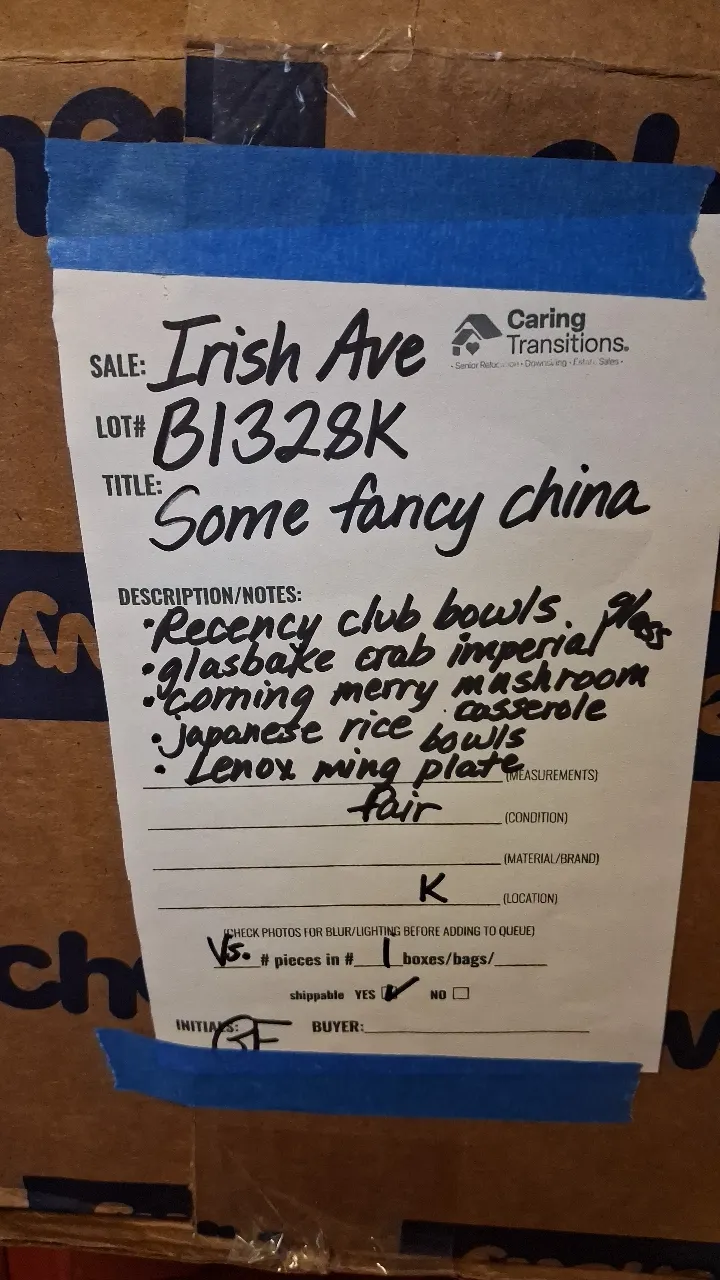 SALE: Irish Ave
Caring
Transitions.
• Senior Relocation • Downsizing • Estate Sales •
LOT# B1328K
TITLE: Some fancy china
DESCRIPTION/NOTES:
• Recency club bowls. glass
• glasbake crab imperial
• corning merry mushroom
casserole
• japanese rice bowls
• Lenox ming plate (MEASUREMENTS)
fair (CONDITION)
(MATERIAL/BRAND)
K (LOCATION)
(CHECK PHOTOS FOR BLUR/LIGHTING BEFORE ADDING TO QUEUE)
Vs. # pieces in # 1 boxes/bags/
shippable YES NO
INITIALS: BUYER: